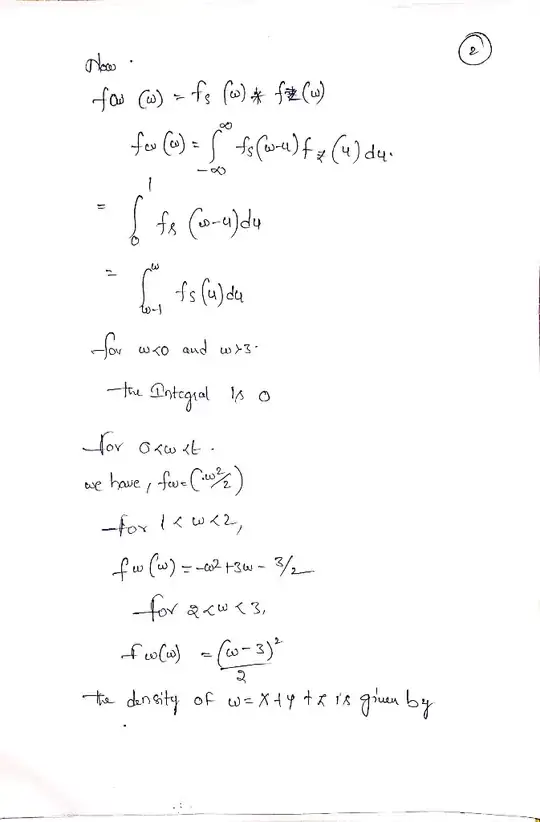 2
Now.
fω (ω) = fs (ω) * fz (ω)
fω (ω) = ∫_{-∞}^{∞} fs(ω-u) fz (u) du.
= ∫_0^1 fs (ω-u) du
= ∫_{ω-1}^{ω} fs (u) du
for ω<0 and ω>3.
the Integral is 0
for 0<ω<1.
we have, fω=(ω²/2)
for 1<ω<2,
fω (ω) = -ω2+3ω - 3/2
for 2<ω<3,
fω(ω) = (ω-3)²/2
the density of ω=X+Y+Z is given by